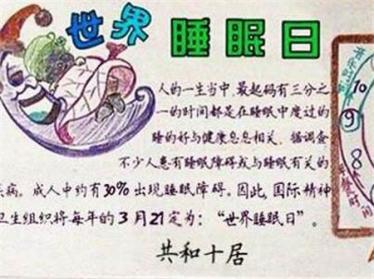 世界 睡眠日
人的一生当中,最起码有三分之
一的时间都是在睡眠中度过的
睡的好与健康息息相关。据调查
不少人患有睡眠障碍或与睡眠有关的
疾病。成人中约有30%出现睡眠障碍。因此,国际精神
卫生组织将每年的3月21定为:“世界睡眠日”。
共和十居
10
9
8